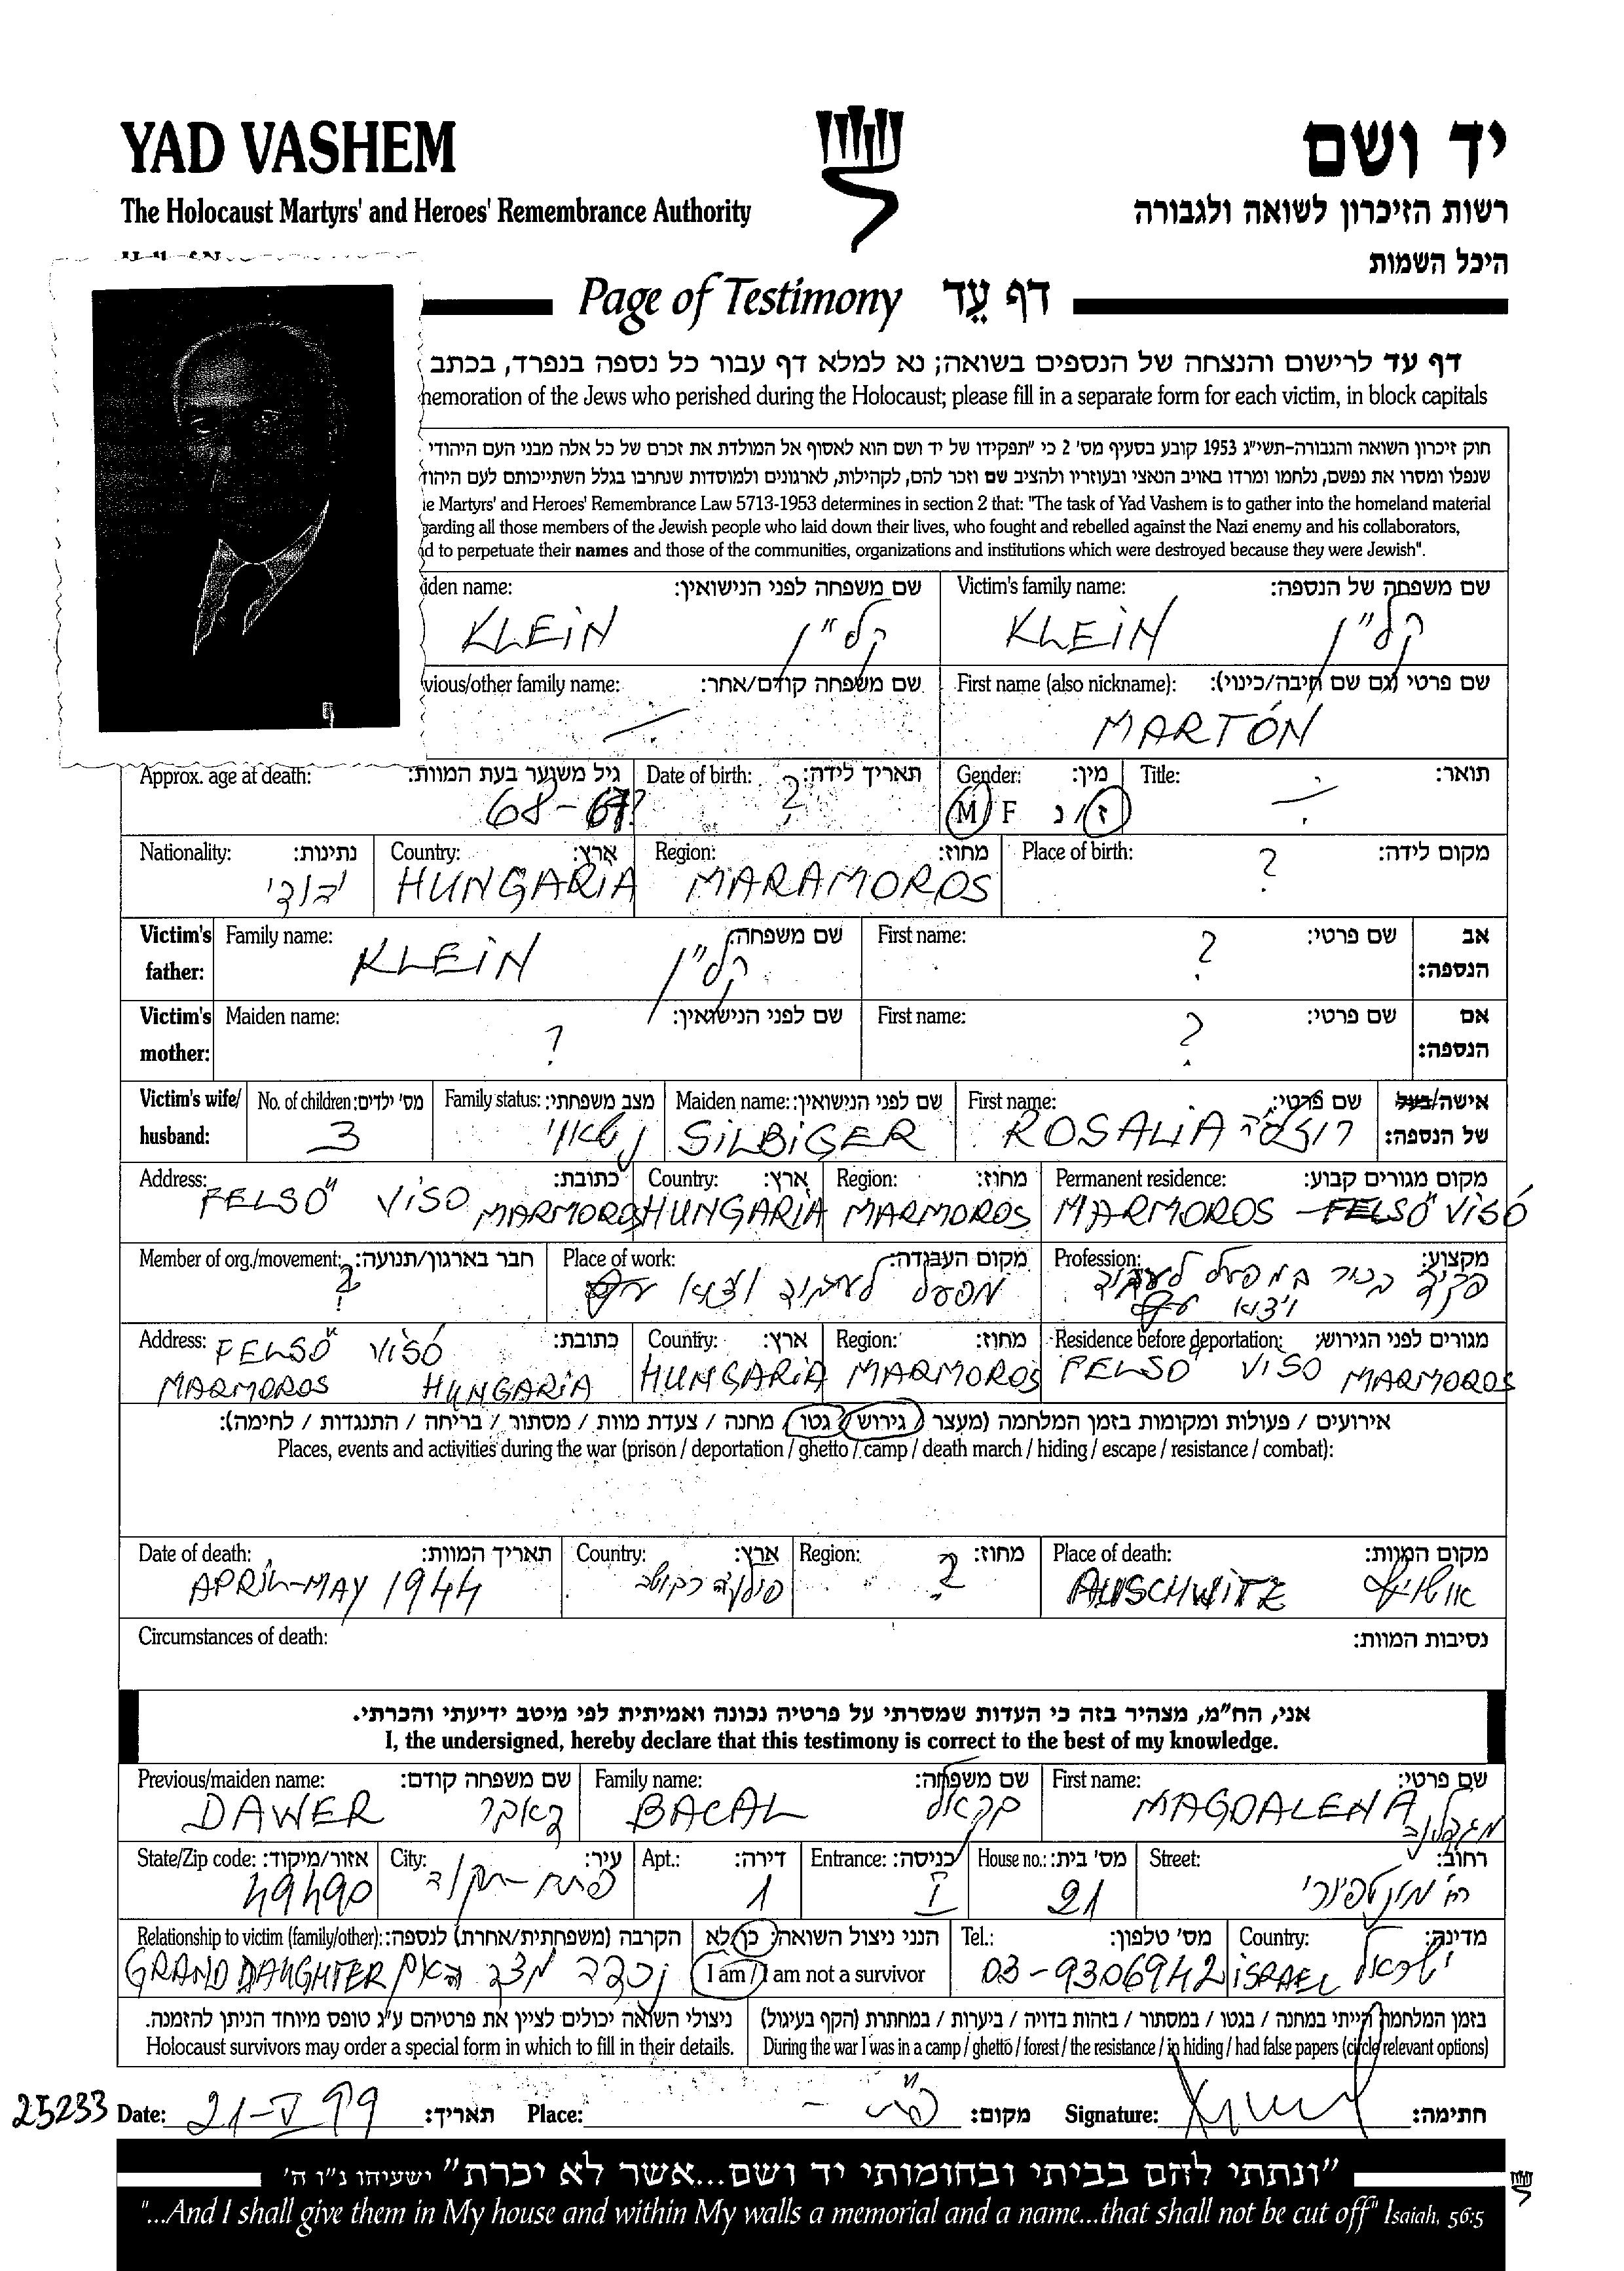 YAD VASHEM
יד ושם
The Holocaust Martyrs' and Heroes' Remembrance Authority
רשות הזיכרון לשואה ולגבורה
היכל השמות
Page of Testimony דף עֵד
דף עד לרישום והנצחה של הנספים בשואה; נא למלא דף עבור כל נספה בנפרד, בכתב
memoration of the Jews who perished during the Holocaust; please fill in a separate form for each victim, in block capitals
חוק זיכרון השואה והגבורה-תשי"ג 1953 קובע בסעיף מס' 2 כי "תפקידו של יד ושם הוא לאסוף אל המולדת את זכרם של כל אלה מבני העם היהודי
שנפלו ומסרו את נפשם, נלחמו ומרדו באויב הנאצי ובעוזריו ולהציב שם וזכר להם, לקהילות, לארגונים ולמוסדות שנחרבו בגלל השתייכותם לעם היהוד
e Martyrs' and Heroes' Remembrance Law 5713-1953 determines in section 2 that: "The task of Yad Vashem is to gather into the homeland material
garding all those members of the Jewish people who laid down their lives, who fought and rebelled against the Nazi enemy and his collaborators,
d to perpetuate their names and those of the communities, organizations and institutions which were destroyed because they were Jewish".
iden name: שם משפחה לפני הנישואין: Victim's family name: שם משפחה של הנספה:
KLEIN קליין KLEIN קליין
vious/other family name: שם משפחה קודם/אחר: First name (also nickname): שם פרטי (גם שם חיבה/כינוי):
MARTÓN
Approx. age at death: גיל משוער בעת המוות: Date of birth: תאריך לידה: Gender: מין: Title: תואר:
68-67? ? M F ז/נ
Nationality: נתינות: Country: ארץ: Region: מחוז: Place of birth: מקום לידה:
יהודי HUNGARIA MARAMOROS ?
Victim's father: Family name: שם משפחה: First name: שם פרטי: אב הנספה:
KLEIN קליין ?
Victim's mother: Maiden name: שם לפני הנישואין: First name: שם פרטי: אם הנספה:
? ?
Victim's wife/husband: No. of children: מס' ילדים: Family status: מצב משפחתי: Maiden name: שם לפני הנישואין: First name: שם פרטי: אישה/בעל של הנספה:
3 נשואי SILBIGER ROSALIA רוזליה
Address: כתובת: Country: ארץ: Region: מחוז: Permanent residence: מקום מגורים קבוע:
FELSŐ VISO MARMOROS HUNGARIA MARMOROS MARMOROS-FELSŐ VISÓ
Member of org./movement: חבר בארגון/תנועה: Place of work: מקום העבודה: Profession: מקצוע:
? מפעל לעבוד וצוא עץ פקיד בכיר במפעל לעבוד ויצוא עץ
Address: כתובת: Country: ארץ: Region: מחוז: Residence before deportation: מגורים לפני הגירוש:
FELSŐ VISÓ MARMOROS HUNGARIA HUNGARIA MARMOROS FELSO VISO MARMOROS
אירועים / פעולות ומקומות בזמן המלחמה (מעצר / גירוש / גטו / מחנה / צעדת מוות / מסתור / בריחה / התנגדות / לחימה):
Places, events and activities during the war (prison / deportation / ghetto / camp / death march / hiding / escape / resistance / combat):
Date of death: תאריך המוות: Country: ארץ: Region: מחוז: Place of death: מקום המוות:
APRIL-MAY 1944 ? AUSCHWITZ אושוויץ
Circumstances of death: נסיבות המוות:
אני, הח"מ, מצהיר בזה כי העדות שמסרתי על פרטיה נכונה ואמיתית לפי מיטב ידיעתי והכרתי.
I, the undersigned, hereby declare that this testimony is correct to the best of my knowledge.
Previous/maiden name: שם משפחה קודם: Family name: שם משפחה: First name: שם פרטי:
DAWER דאבר BACAL בקאל MAGDALENA מגדלנה
State/Zip code: אזור/מיקוד: City: עיר: Apt.: דירה: Entrance: כניסה: House no.: מס' בית: Street: רחוב:
49490 פתח-תקוה 1 I 21 רח' מונטפיורי
Relationship to victim (family/other): הקרבה (משפחתית/אחרת) לנספה: הנני ניצול השואה: כן/לא Tel.: מס' טלפון: Country: מדינה:
GRANDDAUGHTER נכדה מצד האם I am / I am not a survivor 03-9306942 ISRAEL ישראל
ניצולי השואה יכולים לציין את פרטיהם ע"ג טופס מיוחד הניתן להזמנה. בזמן המלחמה הייתי במחנה / בגטו / במסתור / בזהות בדויה / ביערות / במחתרת (הקף בעיגול)
Holocaust survivors may order a special form in which to fill in their details. During the war I was in a camp / ghetto / forest / the resistance / in hiding / had false papers (circle relevant options)
25233 Date: 21-V 99 תאריך: Place: פ"ת מקום: Signature: חתימה:
"ונתתי להם בביתי ובחומותי יד ושם...אשר לא יכרת" ישעיהו נ"ו ה'
"...And I shall give them in My house and within My walls a memorial and a name...that shall not be cut off" Isaiah, 56:5